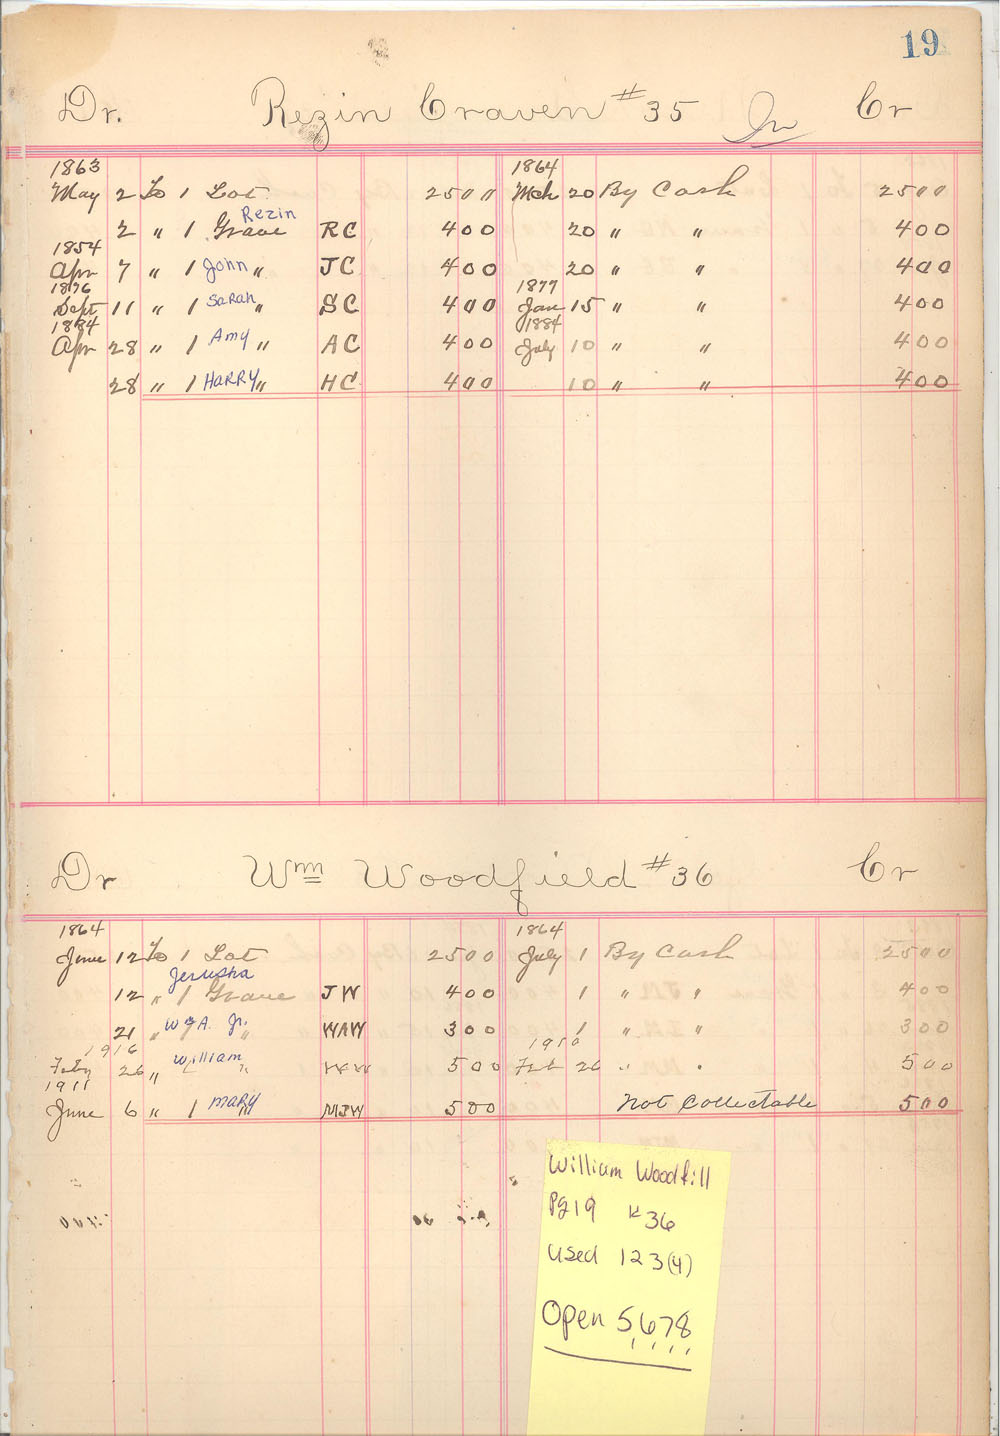 19
Dr. Rezin Craven #35 Cr
1863 1864
May 2 To 1 Lot 2500 Mch 20 By Cash 2500
Rezin
2 " 1 Grave RC 400 20 " " 400
1854
Apr 7 " 1 John " JC 400 20 " " 400
1876 1877
Sept 11 " 1 Sarah " SC 400 Jan 15 " " 400
1884 1884
Apr 28 " 1 Amy " AC 400 July 10 " " 400
28 " 1 HARRY " HC 400 10 " " 400
Dr Wm Woodfield #36 Cr
1864 1864
June 12 To 1 Lot 2500 July 1 By Cash 2500
Jerusha
12 " 1 Grave JW 400 1 " " 400
21 " Wm A. Jr. " WAW 300 1 " " 300
1916 1916
Feby 26 " William " 500 Feb 26 " " 500
1911
June 6 " 1 MARY " MJW 500 Not Collectable 500
William Woodfill
Pg 19 # 36
Used 1 2 3 (4)
Open 5, 6, 7, 8,